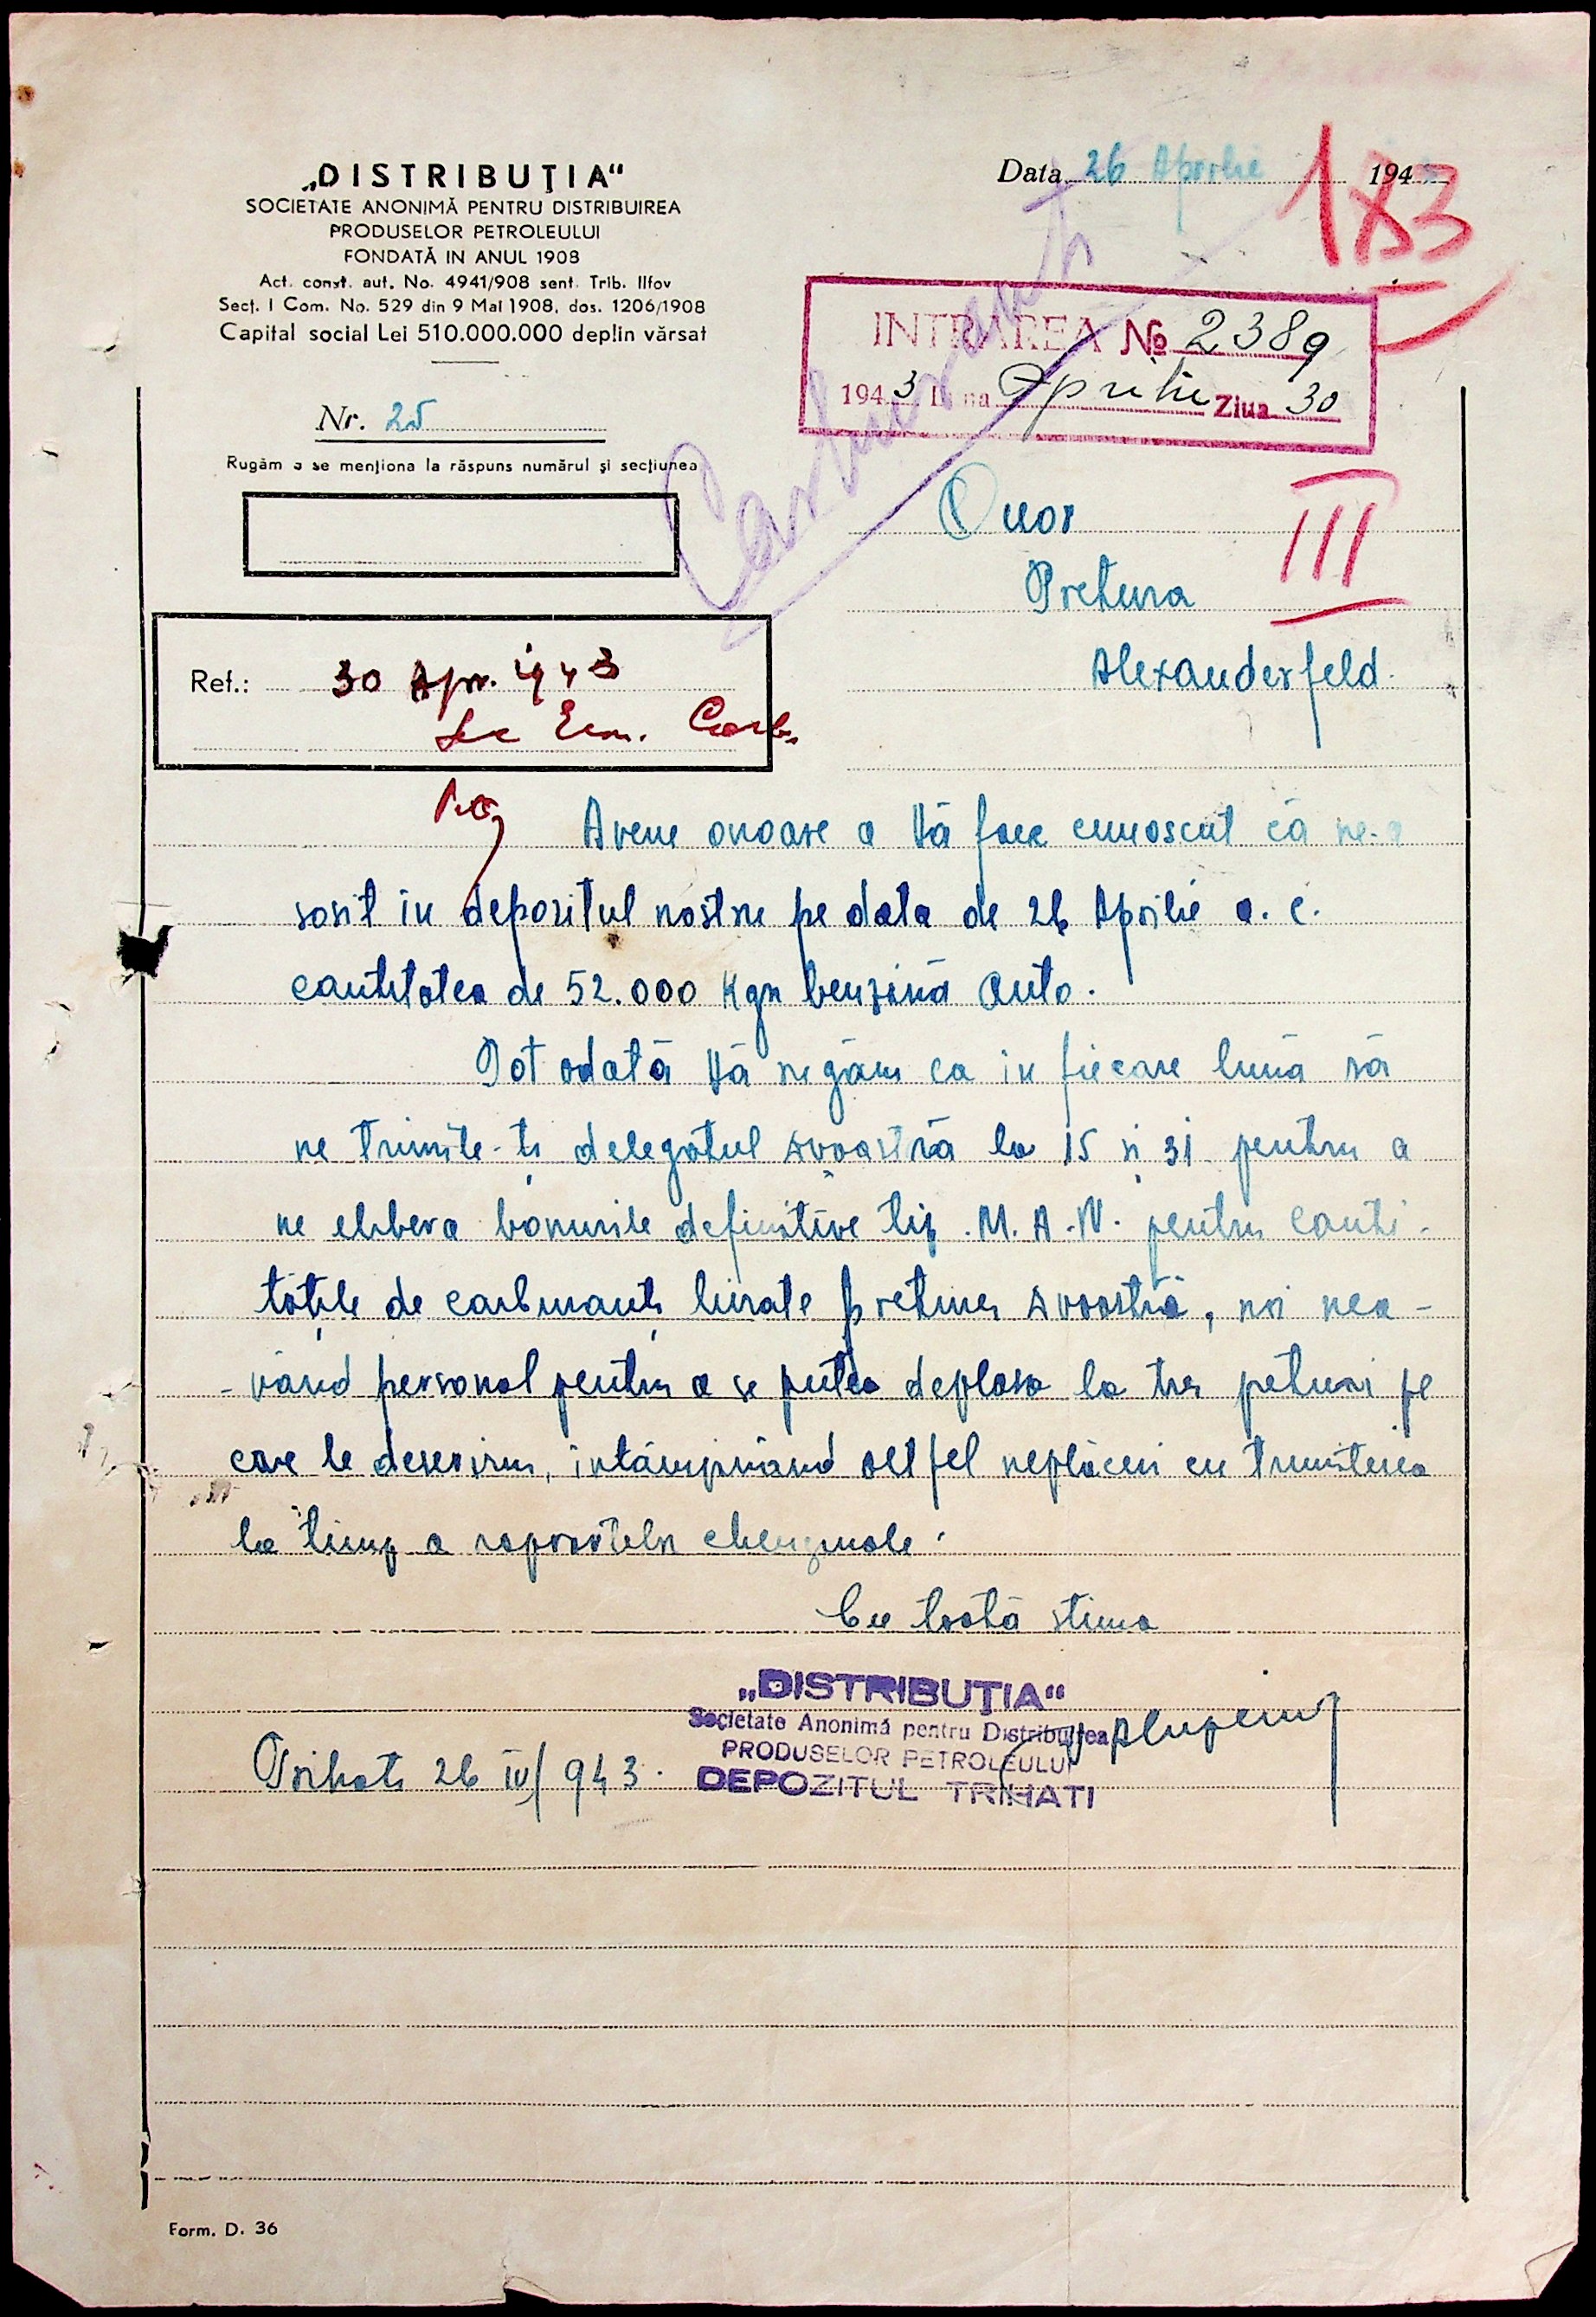 „DISTRIBUŢIA“
SOCIETATE ANONIMĂ PENTRU DISTRIBUIREA
PRODUSELOR PETROLEULUI
FONDATĂ IN ANUL 1908
Act. const. aut. No. 4941/908 sent. Trib. Ilfov
Secţ. I Com. No. 529 din 9 Mai 1908, dos. 1206/1908
Capital social Lei 510.000.000 deplin vărsat
Data 26 Aprilie 194
183
INTRAREA No 2389
1943 Luna Aprilie Ziua 30
Carburanti
Nr. 25
Rugăm a se menţiona la răspuns numărul şi secţiunea
Onor
III
Pretura
Alexanderfeld.
Ref.: 30 Apr. 1943
Avem onoare a Vă face cunoscut că ne-a
sosit in depozitul nostru pe data de 26 Aprilie a. c.
cantitatea de 52.000 Kgr benzină auto.
Tot odată Vă rugăm ca in fiecare lună să
ne trimite-ti delegatul Dvoastră la 15 si 31 pentru a
ne elibera bonurile definitive tip. M. A. N. pentru canti-
tăţile de carburanţi livrate preturei Dvoastră, noi nea-
-vănd personal pentru a se putea deplasa la trei preturi pe
care le deservim, intâmpinănd astfel neplăceri cu trimiterea
la timp a rapoartelor chenzinale.
Cu toată stima
„DISTRIBUŢIA“
Societate Anonimă pentru Distribuirea
PRODUSELOR PETROLEULUI
DEPOZITUL TRIHATI
Trihati 26 IV/943.
Form. D. 36